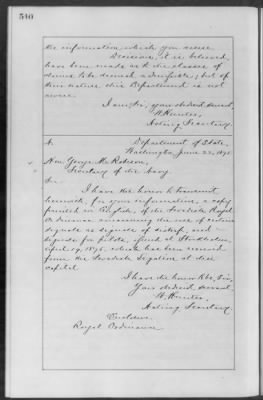 540
the information which you desire.
Decisions, it is believed,
have been made as to the classes of
claims but of
their nature this Department is not
aware.
I am, Sir, your obedient servant,
W. Hunter,
Acting Secretary.
Department of State,
Washington, June 23, 1875.
Hon. George M. Robeson,
Secretary of the Navy.
Sir:
I have the honor to transmit
herewith, for your information, a copy
printed in English, of the Swedish Royal
Ordinance concerning the use of certain
signals as signals of distress, and
signals for pilots, issued at Stockholm,
April 1875, which has been received
from the Swedish Legation at this
Capital.
I have the honor to be, Sir,
Your obedient servant
W. Hunter,
Acting Secretary.
Enclosure:
Royal Ordinance.